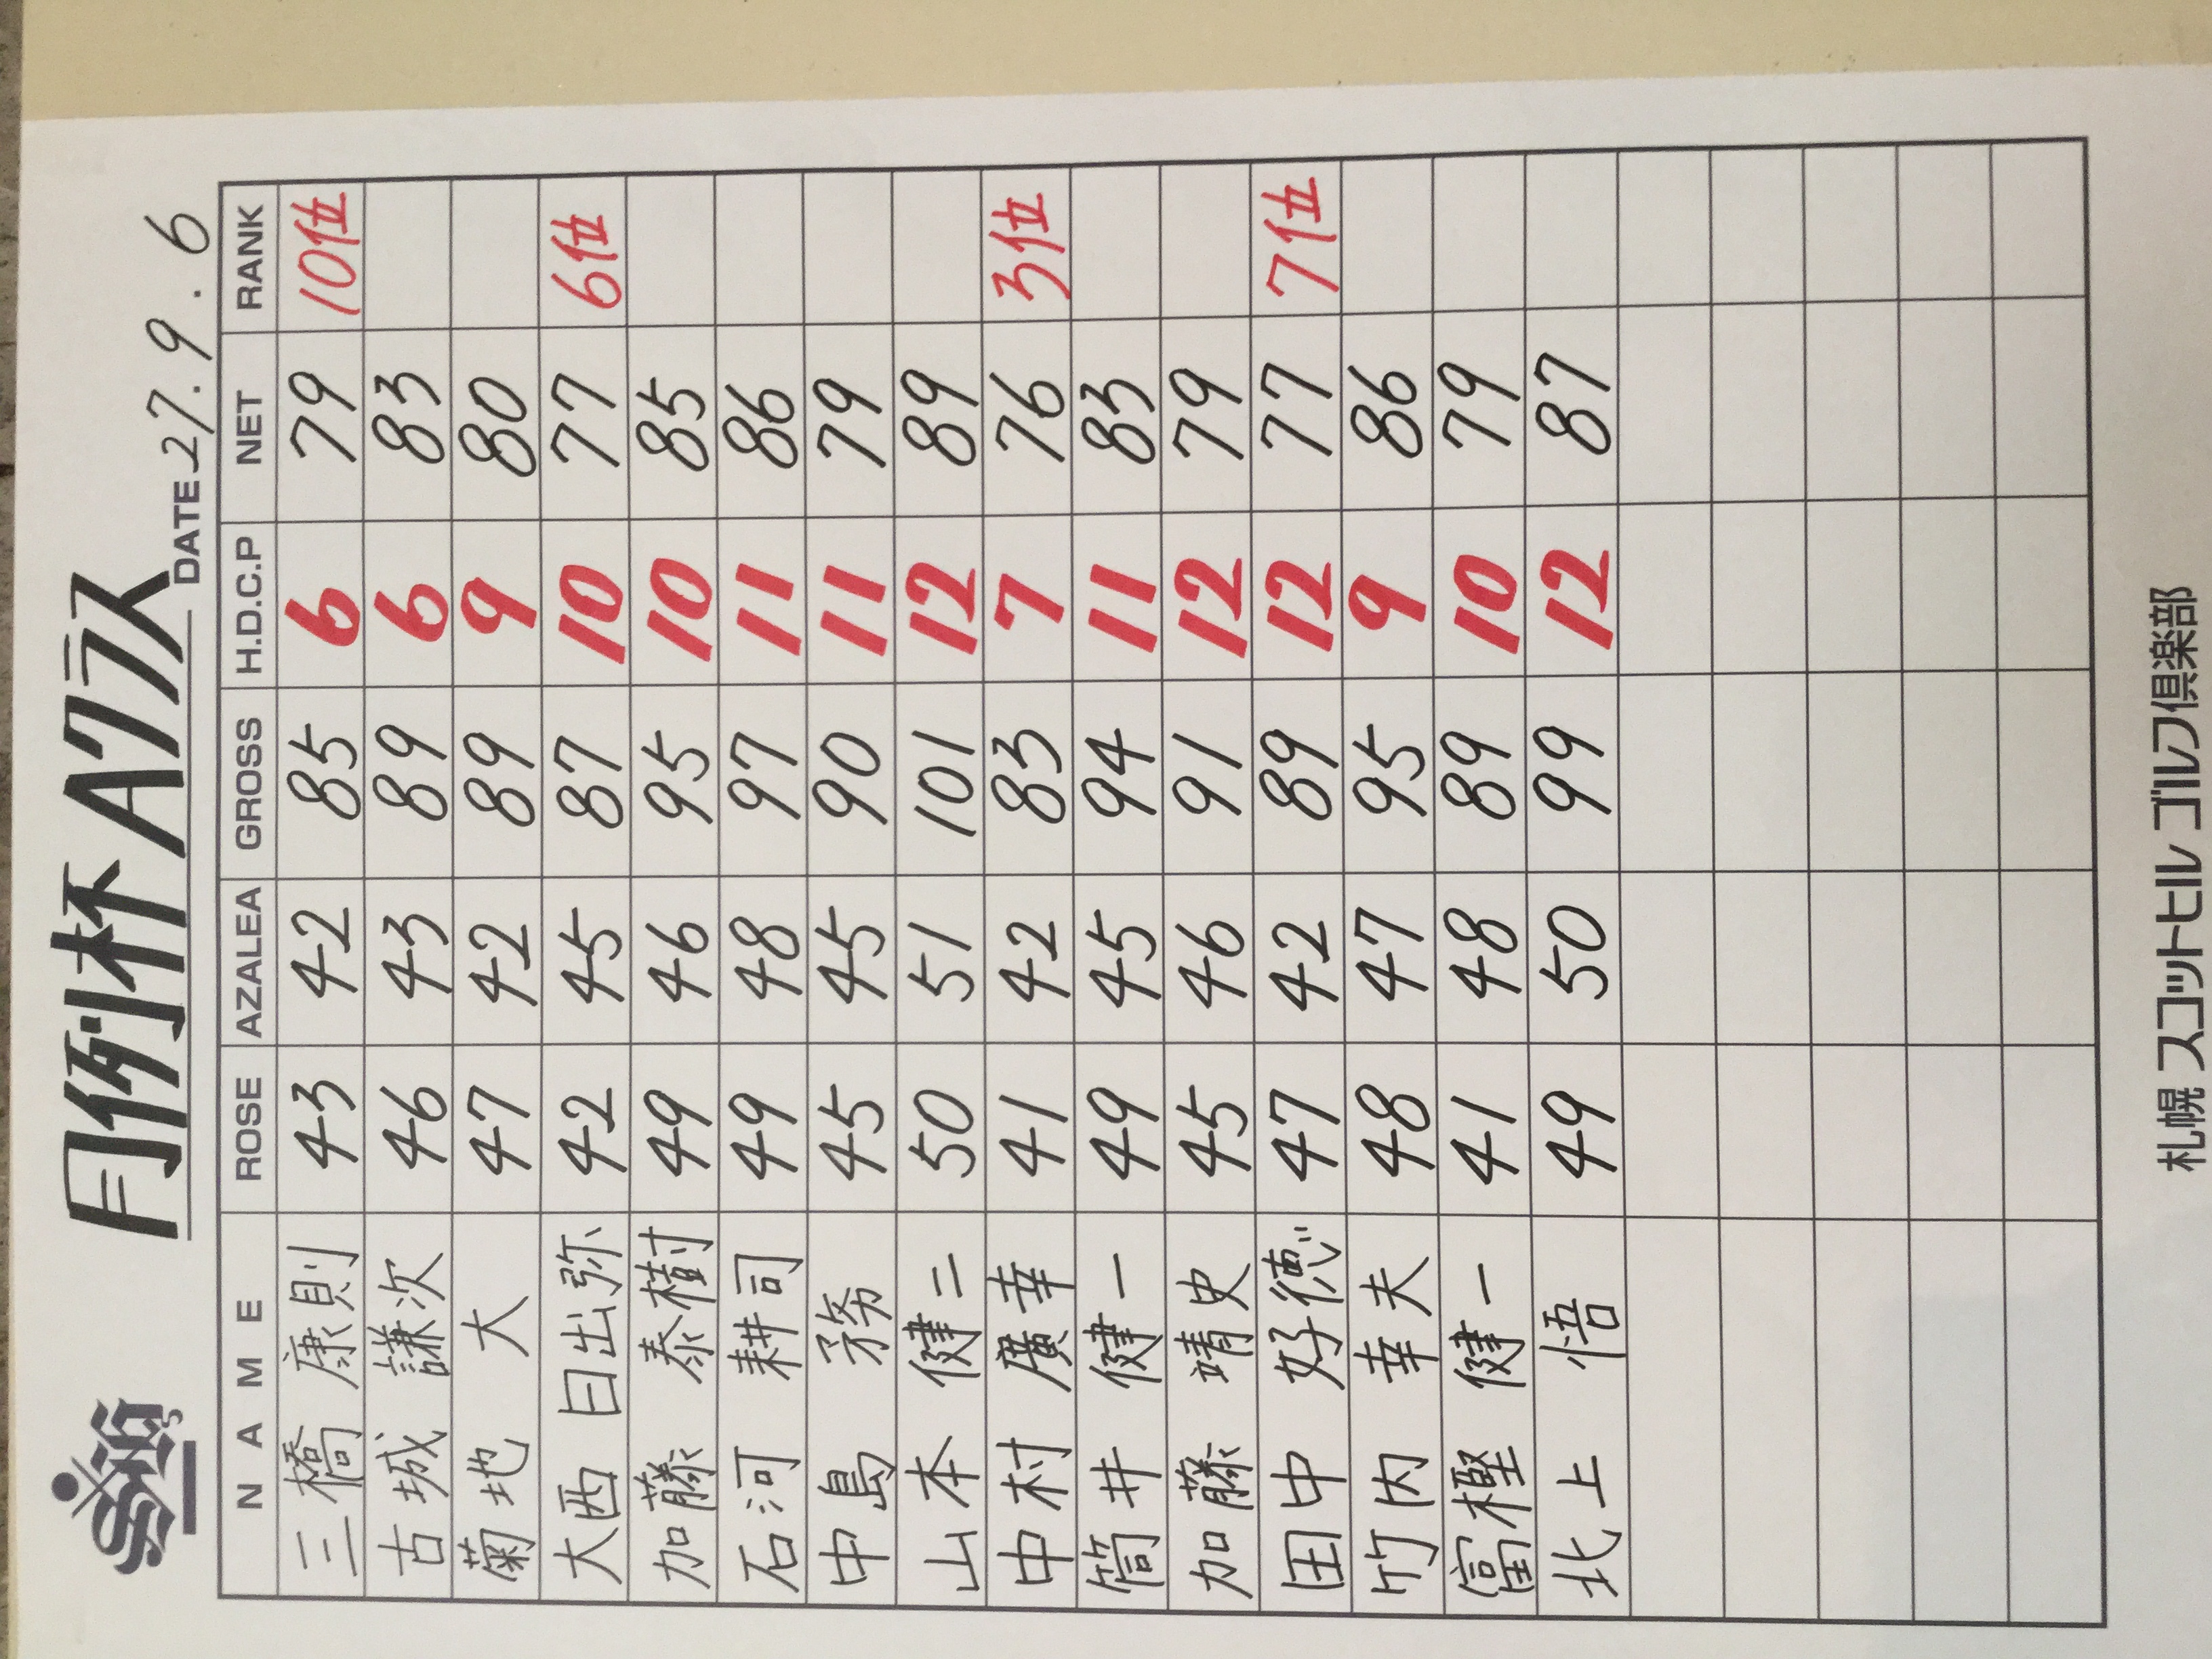 月例杯 Aクラス
DATE 27.9.6
NAME ROSE AZALEA GROSS H.D.C.P NET RANK
三橋 康則 43 42 85 6 79 10位
古城 謙次 46 43 89 6 83
菊地 大 47 42 89 9 80
大西 日出弥 42 45 87 10 77 6位
加藤 泰樹 49 46 95 10 85
石河 耕司 49 48 97 11 86
中島 務 45 45 90 11 79
山本 健二 50 51 101 12 89
中村 廣幸 41 42 83 7 76 3位
筒井 健一 49 45 94 11 83
加藤 靖史 45 46 91 12 79
田中 好徳 47 42 89 12 77 7位
竹内 幸夫 48 47 95 9 86
富樫 健一 41 48 89 10 79
北上 悟 49 50 99 12 87
札幌 スコットヒル ゴルフ倶楽部